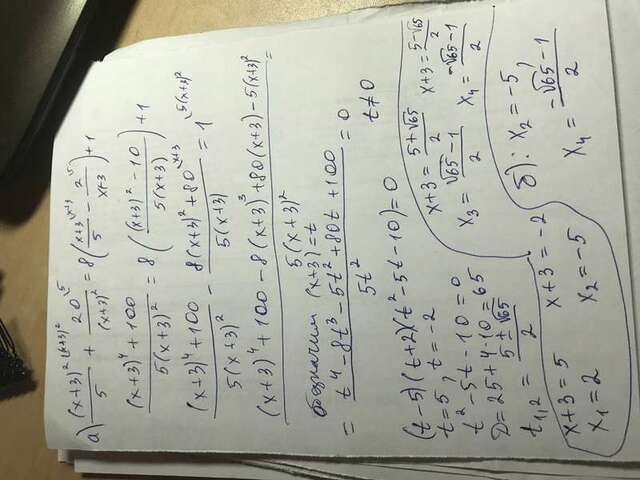 а) (x+3)²^(\(x+3)²)/5 + 20^(\5)/(x+3)² = 8((x+3)^(\x+3)/5 − 2^(\5)/(x+3)) + 1
((x+3)⁴+100)/(5(x+3)²) = 8(((x+3)²−10)/(5(x+3))) + 1
((x+3)⁴+100)/(5(x+3)²) − (8(x+3)²+80)^(\x+3)/(5(x+3)) = 1^(\5(x+3)²)
((x+3)⁴+100−8(x+3)³+80(x+3)−5(x+3)²)/(5(x+3)²) =
обозначим (x+3)=t
= (t⁴−8t³−5t²+80t+100)/(5t²) = 0
t≠0
(t−5)(t+2)(t²−5t−10)=0
t=5, t=−2
t²−5t−10=0
D=25+4·10=65
t₁,₂ = (5±√65)/2
x+3=5 x+3=−2
x₁=2 x₂=−5
x+3=(5+√65)/2 x+3=(5−√65)/2
x₃=(√65−1)/2 x₄=(−√65−1)/2
б): x₂=−5,
x₄=(−√65−1)/2